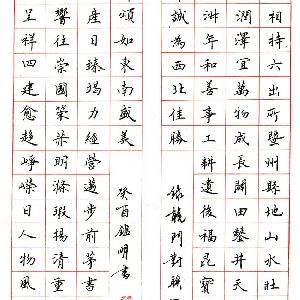 相持六出所暨州縣地山水壯
潤澤宜萬物成長開田鑿井天
年和善事工耕遺後福昆寶
誠為西北佳勝
錄龍門對
頌如東南盛美
癸酉明書
產日臻竭力經營邁步前茅書
響往崇國築染明滌瑕揚清重
呈祥四建愈趨崢嶸日人物風